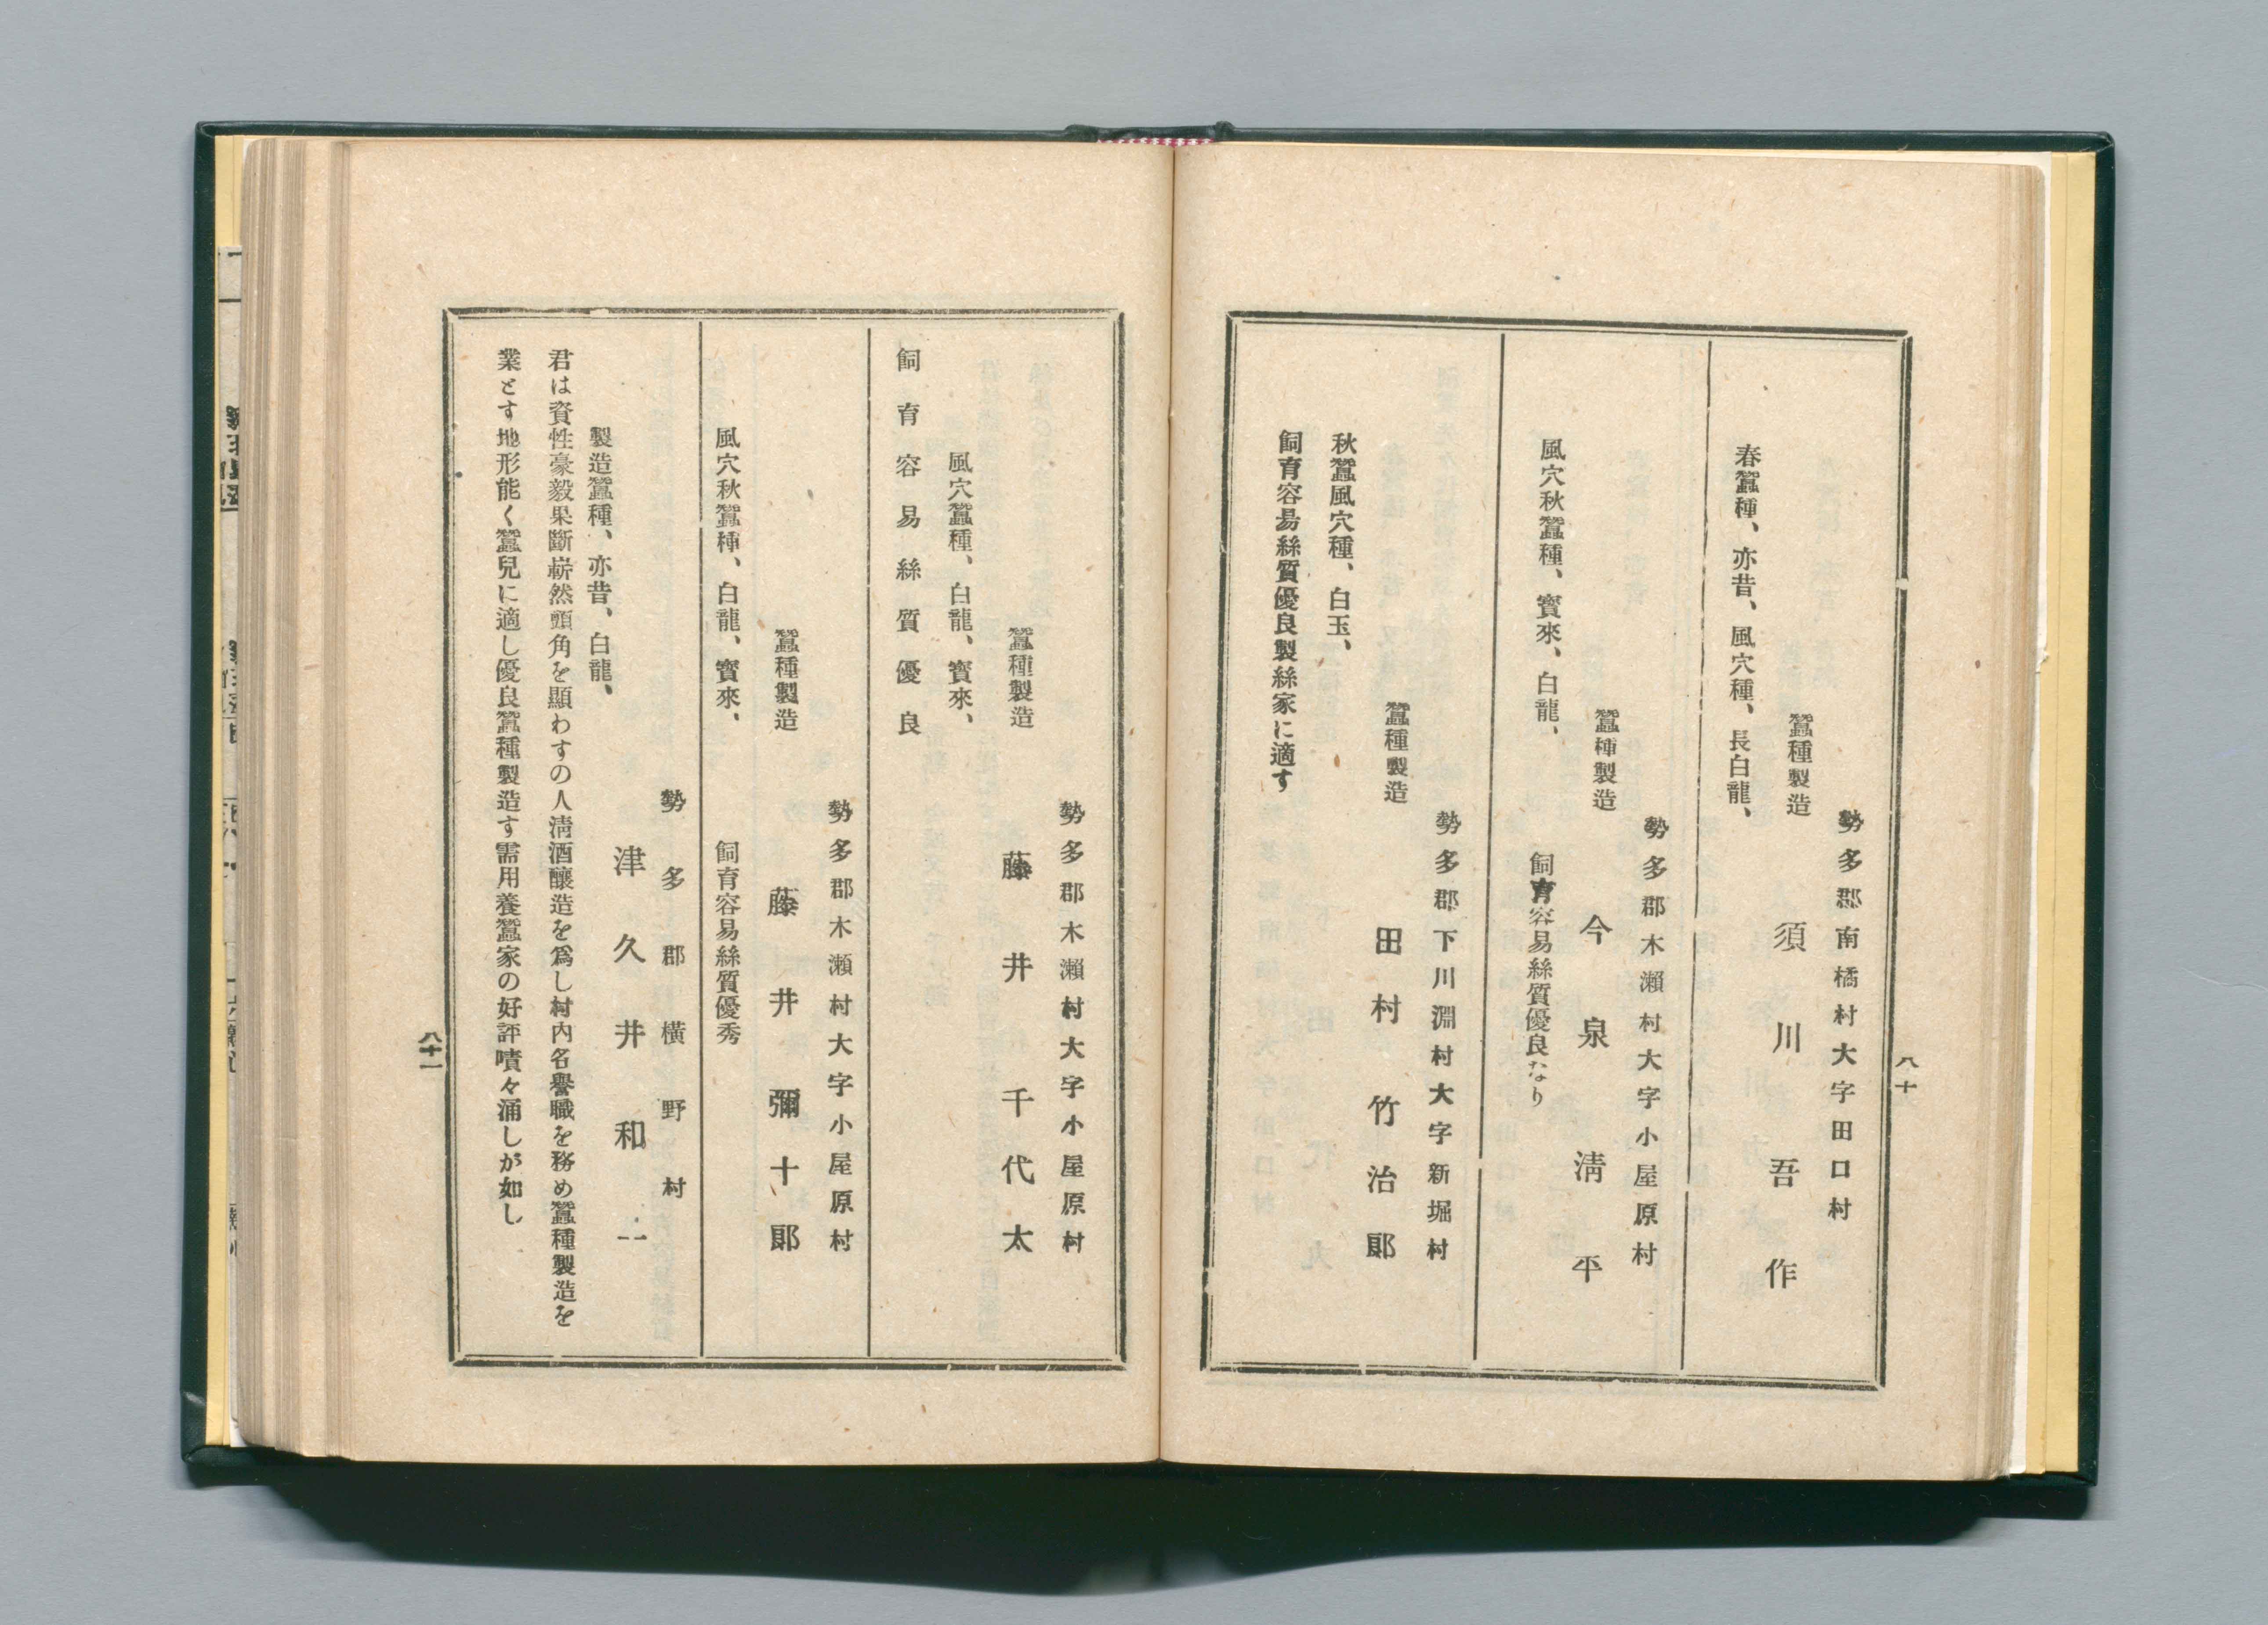 勢多郡南橘村大字田口村
蠶種製造　須川吾作
春蠶種、亦昔、風穴種、長白龍、
勢多郡木瀬村大字小屋原村
蠶種製造　今泉淸平
風穴秋蠶種、寳來、白龍、　飼育容易絲質優良なり
勢多郡下川淵村大字新堀村
蠶種製造　田村竹治郞
秋蠶風穴種、白玉、
飼育容昜絲質優良製絲家に適す
八十
勢多郡木瀬村大字小屋原村
蠶種製造　藤井千代太
風穴蠶種、白龍、寳來、
飼育容易絲質優良
勢多郡木瀬村大字小屋原村
蠶種製造　藤井彌十郞
風穴秋蠶種、白龍、寳來、　飼育容易絲質優秀
勢多郡橫野村
津久井和
製造蠶種、亦昔、白龍、
君は資性豪毅果斷嶄然頭角を顯わすの人淸酒釀造を爲し村內名譽職を務め蠶種製造を
業とす地形能く蠶兒に適し優良蠶種製造す需用養蠶家の好評嘖々涌しが如し
八十一